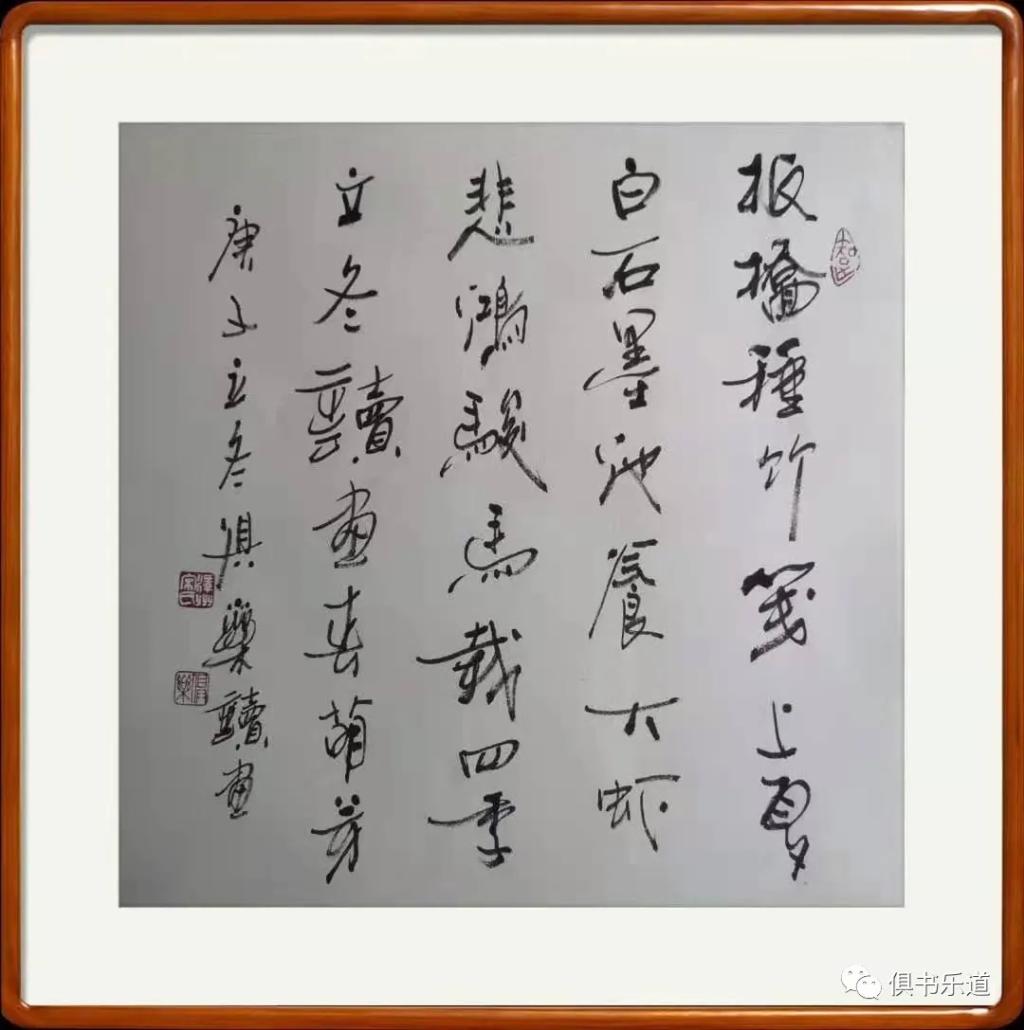 板橋種竹箋上夏
白石墨池養大虾
悲鴻駿馬載四季
立冬讀畫春萌芽
庚子立冬俱樂讀畫
俱樂
俱书乐道